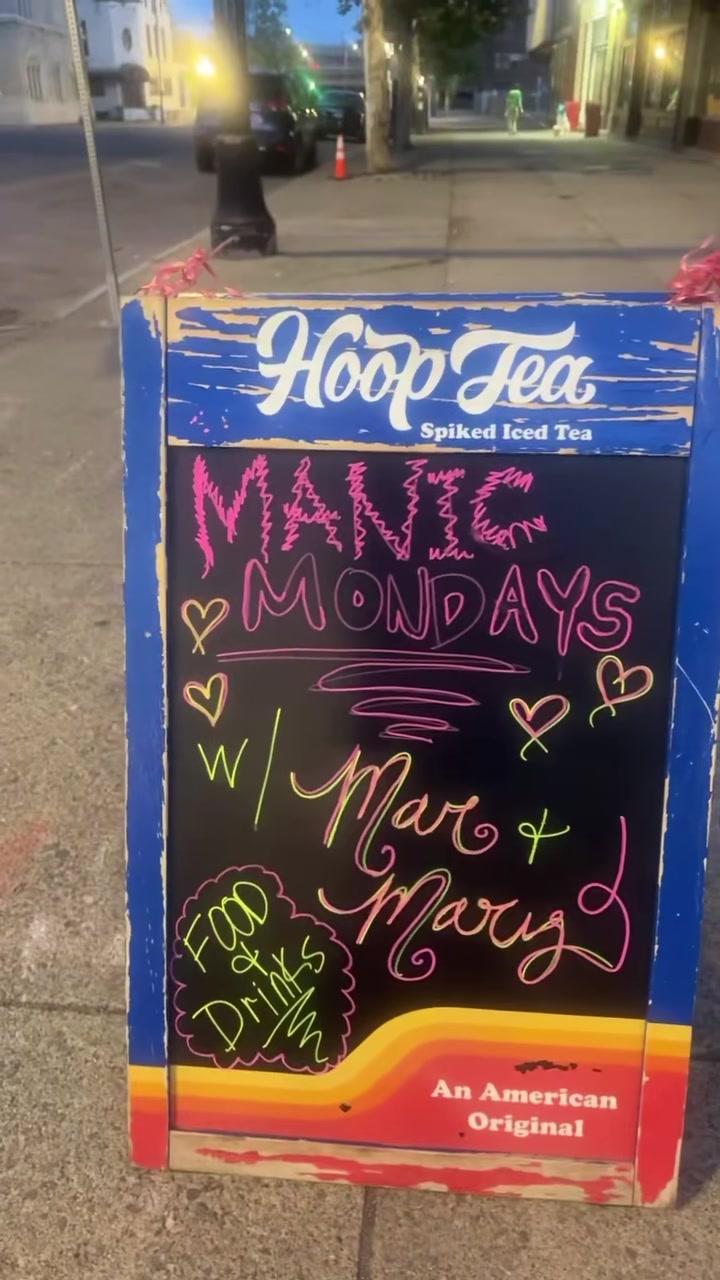 Hoop Tea
Spiked Iced Tea
MANIC
MONDAYS
W/ Mar &
Mary
FOOD
&
Drinks
An American
Original